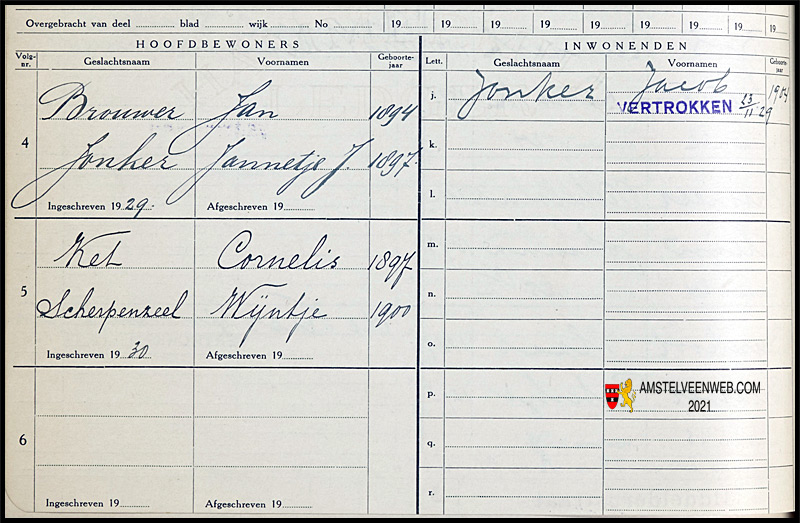 Overgebracht van deel blad wijk No 19 19 19 19 19 19 19 19 19
HOOFDBEWONERS
Volg-nr. Geslachtsnaam Voornamen Geboorte-jaar
4
Brouwer Jan 1894
Jonker Jannetje J. 1897
Ingeschreven 1929. Afgeschreven 19
5
Ket Cornelis 1897
Scherpenzeel Wijntje 1900
Ingeschreven 1930 Afgeschreven 19
6
Ingeschreven 19 Afgeschreven 19
INWONENDEN
Lett. Geslachtsnaam Voornamen Geboorte-jaar
j. Jonker Jacob 1904
VERTROKKEN 23/11 29
k.
l.
m.
n.
o.
p.
q.
r.
AMSTELVEENWEB.COM
2021